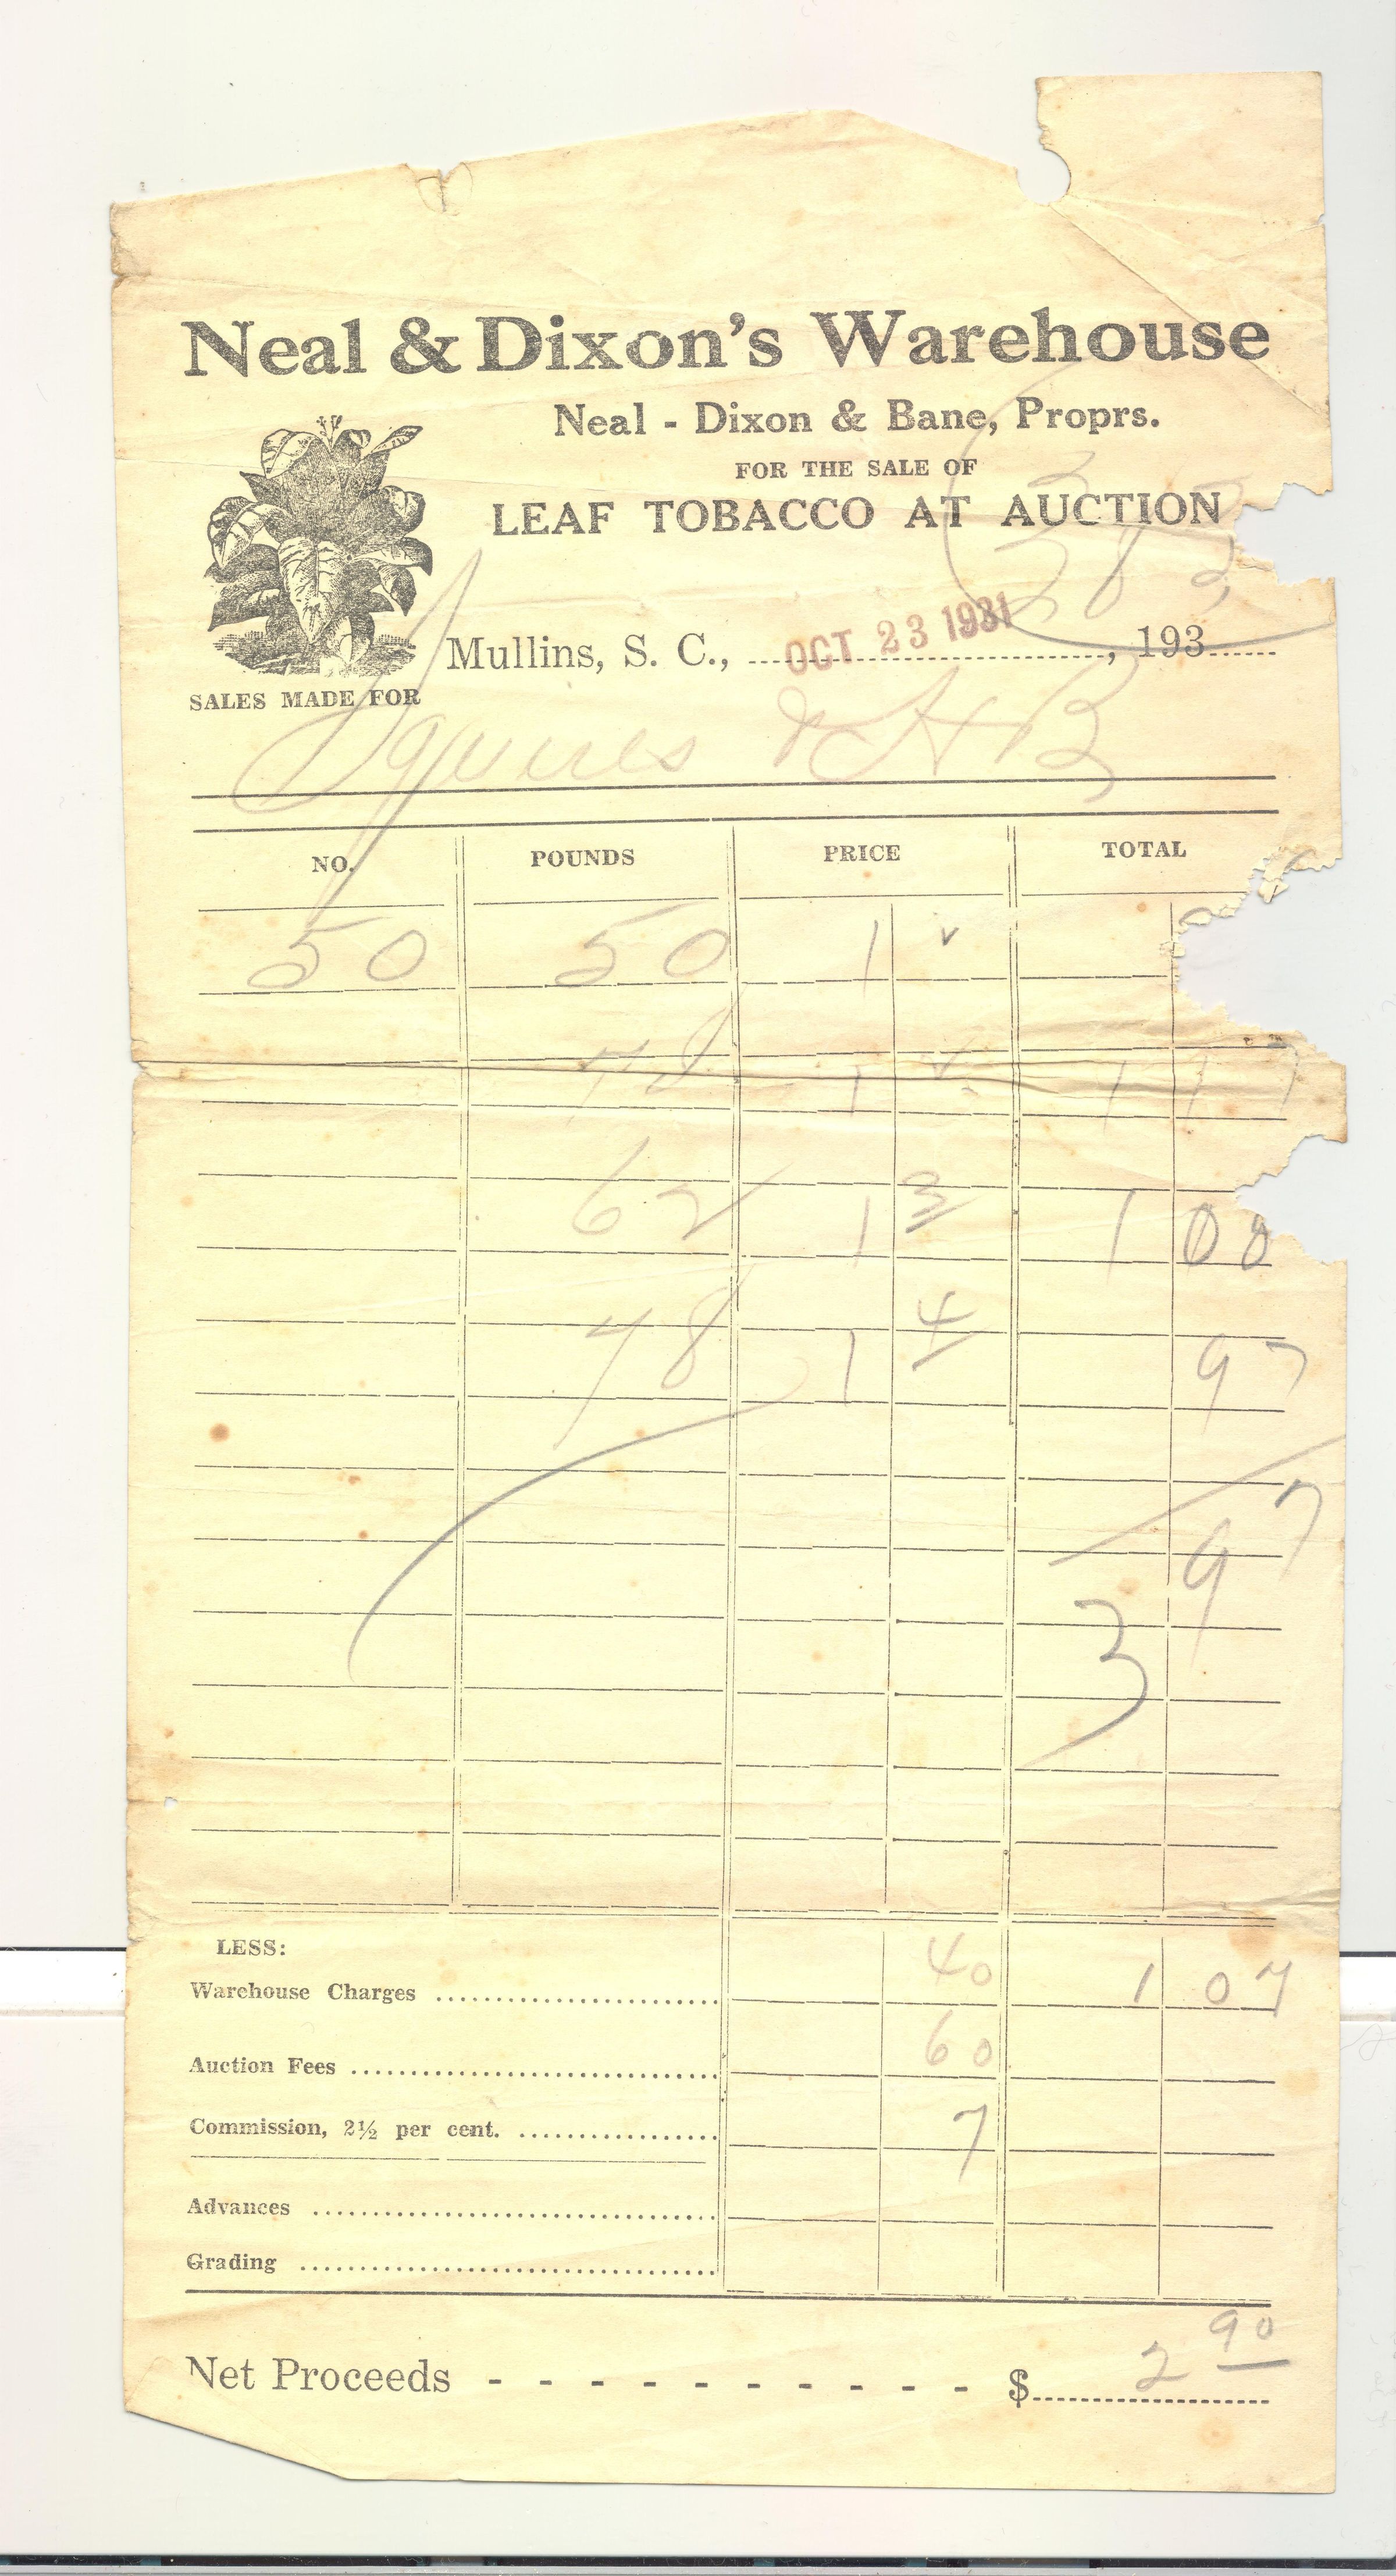 Neal & Dixon's Warehouse
Neal - Dixon & Bane, Proprs.
FOR THE SALE OF
LEAF TOBACCO AT AUCTION
Mullins, S. C., OCT 23 1931, 193
SALES MADE FOR
Squires & HB
NO. POUNDS PRICE TOTAL
50 50 1
48 1
62 1 3 1 08
48 1 4 97
3 97
LESS:
Warehouse Charges 40 1 07
Auction Fees 60
Commission, 2½ per cent. 7
Advances
Grading
Net Proceeds - - - - - - - - - - $ 2 90